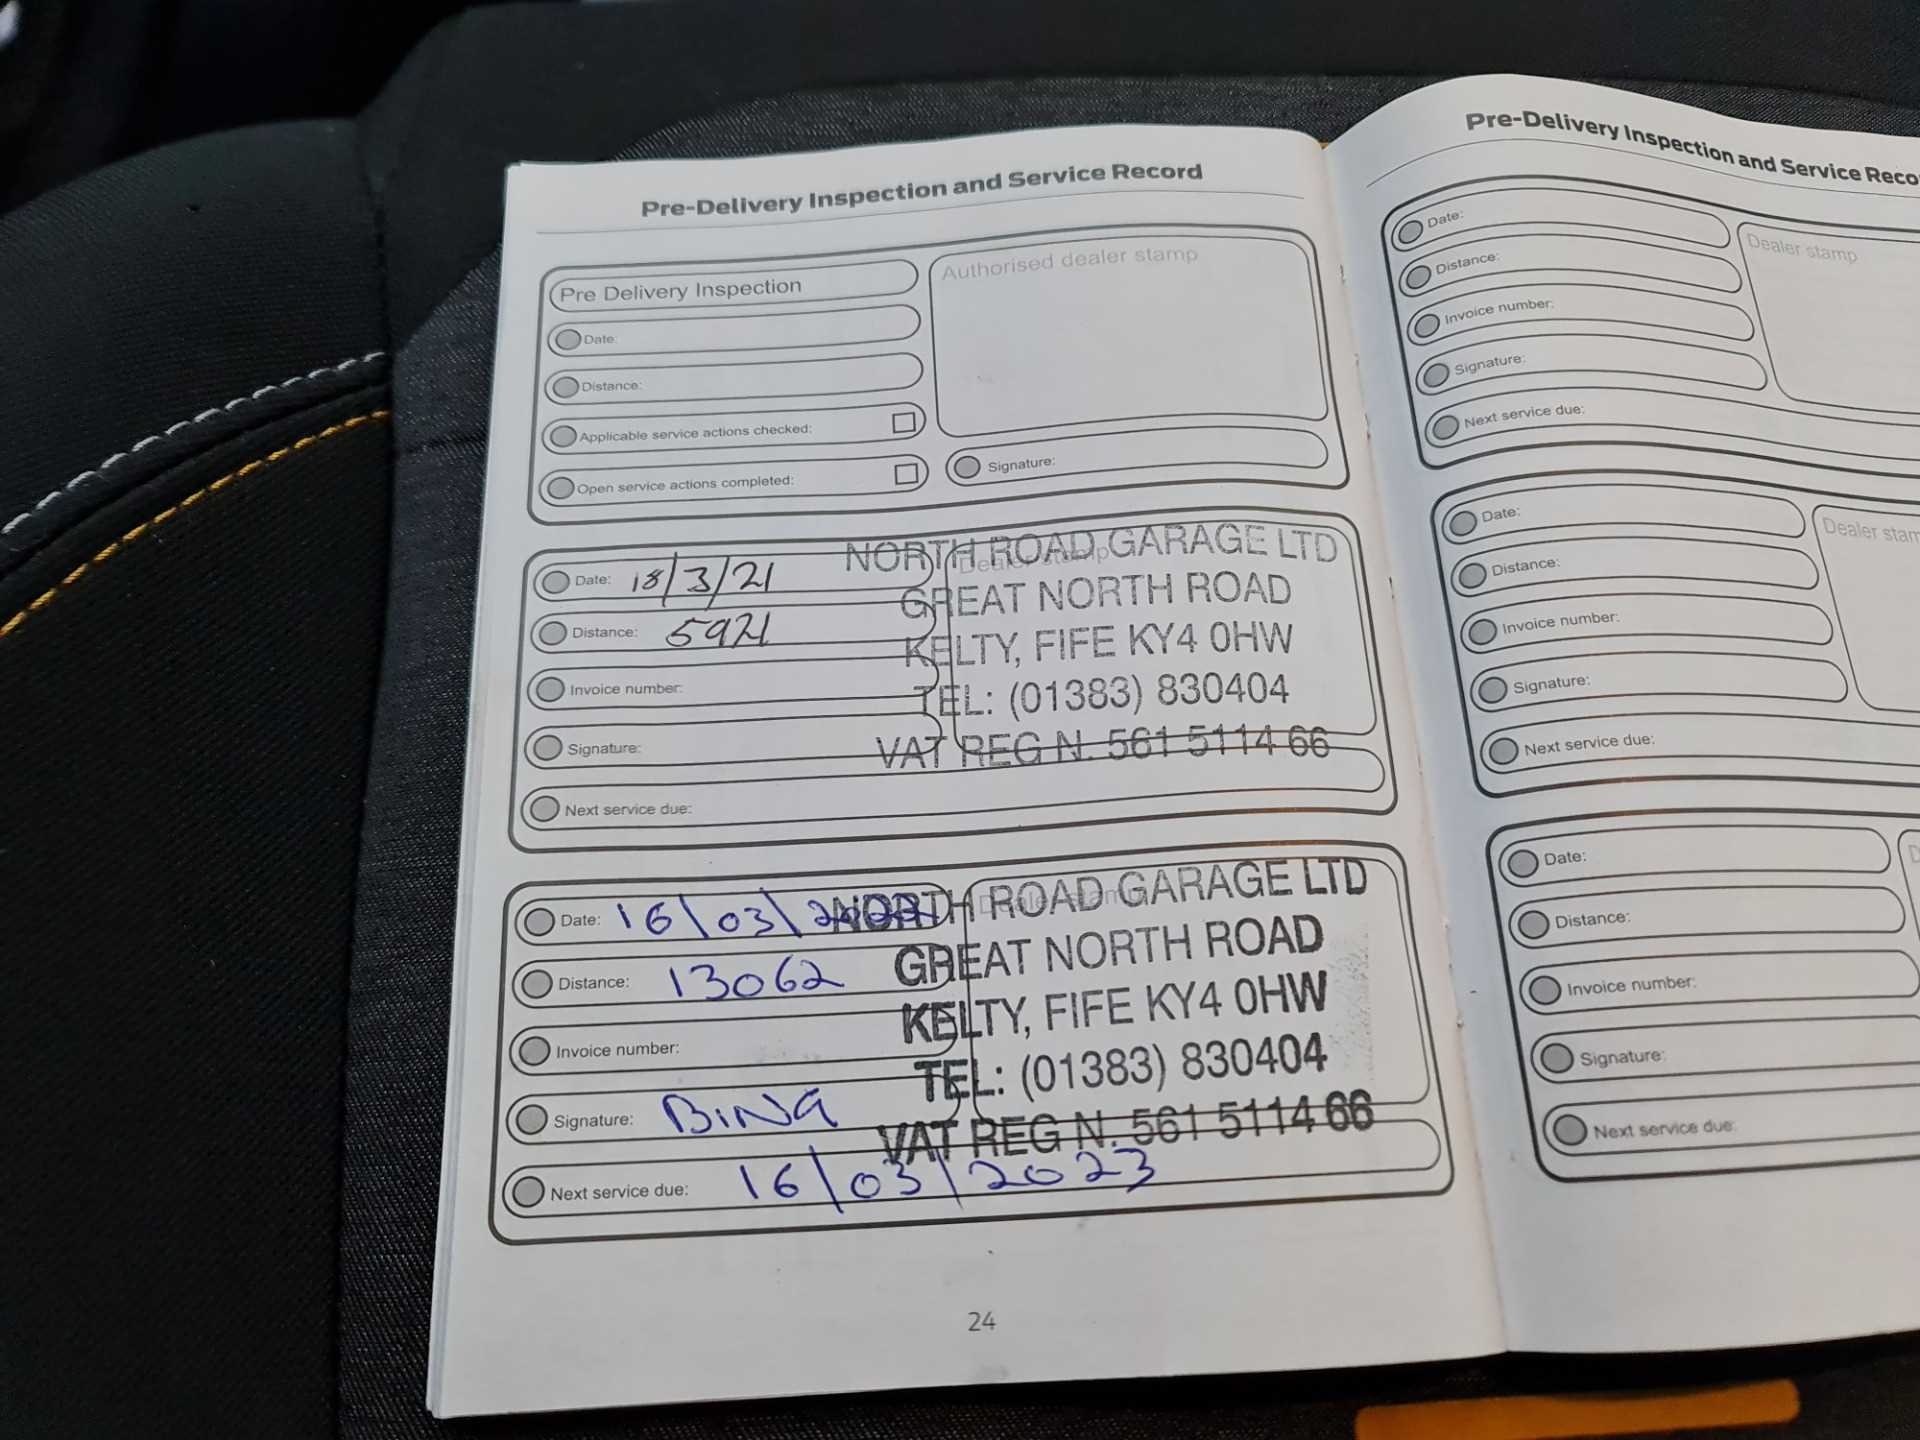 Pre-Delivery Inspection and Service Record
Pre Delivery Inspection
Date:
Distance:
Applicable service actions checked:
Open service actions completed:
Authorised dealer stamp
Signature:
Date: 18/3/21
Distance: 5921
Invoice number:
Signature:
Next service due:
Dealer stamp
NORTH ROAD GARAGE LTD
GREAT NORTH ROAD
KELTY, FIFE KY4 0HW
TEL: (01383) 830404
VAT REG N. 561 5114 66
Date: 16\03\2022
Distance: 13062
Invoice number:
Signature: BiNG
Next service due: 16\03\2023
Dealer stamp
NORTH ROAD GARAGE LTD
GREAT NORTH ROAD
KELTY, FIFE KY4 0HW
TEL: (01383) 830404
VAT REG N. 561 5114 66
24
Pre-Delivery Inspection and Service Reco
Date:
Distance:
Invoice number:
Signature:
Next service due:
Dealer stamp
Date:
Distance:
Invoice number:
Signature:
Next service due:
Dealer stam
Date:
Distance:
Invoice number:
Signature:
Next service due:
D